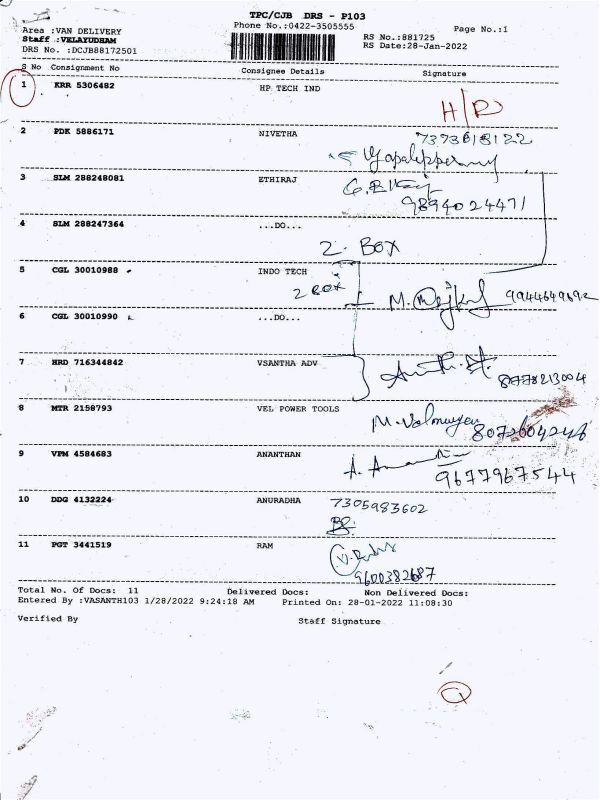 TPC/CJB DRS - P103
Area :VAN DELIVERY
Phone No.:0422-3505555
Page No.:1
Staff :VELAYUDHAM
RS No.:881725
DRS No. :DCJB88172501
RS Date:28-Jan-2022
S No Consignment No Consignee Details Signature
1 KRR 5306482 HP TECH IND
2 PDK 5886171 NIVETHA
7373818122
3 SLM 288248081 ETHIRAJ
9894024471
4 SLM 288247364 ...DO...
2. BOX
5 CGL 30010988 INDO TECH
2 BOX
9944649692
6 CGL 30010990 ...DO...
7 HRD 716344842 VSANTHA ADV
8778213004
8 MTR 2158793 VEL POWER TOOLS
9 VPM 4584683 ANANTHAN
9677967544
10 DDG 4132224 ANURADHA 7305983602
11 PGT 3441519 RAM
9600382687
Total No. Of Docs: 11 Delivered Docs: Non Delivered Docs:
Entered By :VASANTH103 1/28/2022 9:24:18 AM Printed On: 28-01-2022 11:08:30
Verified By Staff Signature